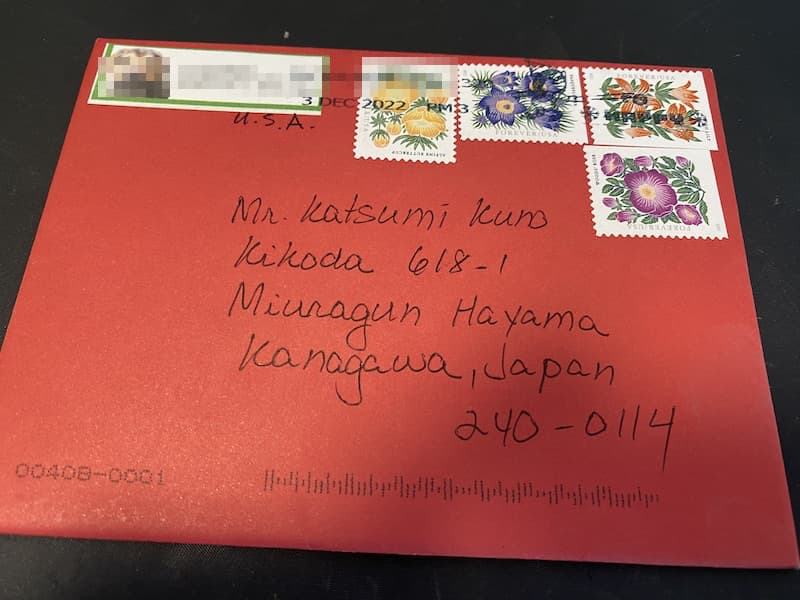 3 DEC 2022 PM 3
U.S.A.
ALPINE BUTTERCUP
FOREVER/USA
FOREVER/USA
FOREVER/USA
Mr. Katsumi Kuno
Kikoda 618-1
Miuragun Hayama
Kanagawa, Japan
240-0114
00408-0001